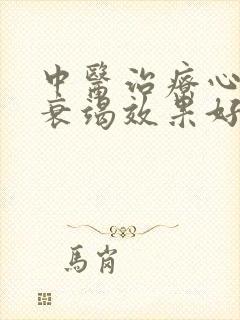 中醫治療心
衰竭效果好
馬肖